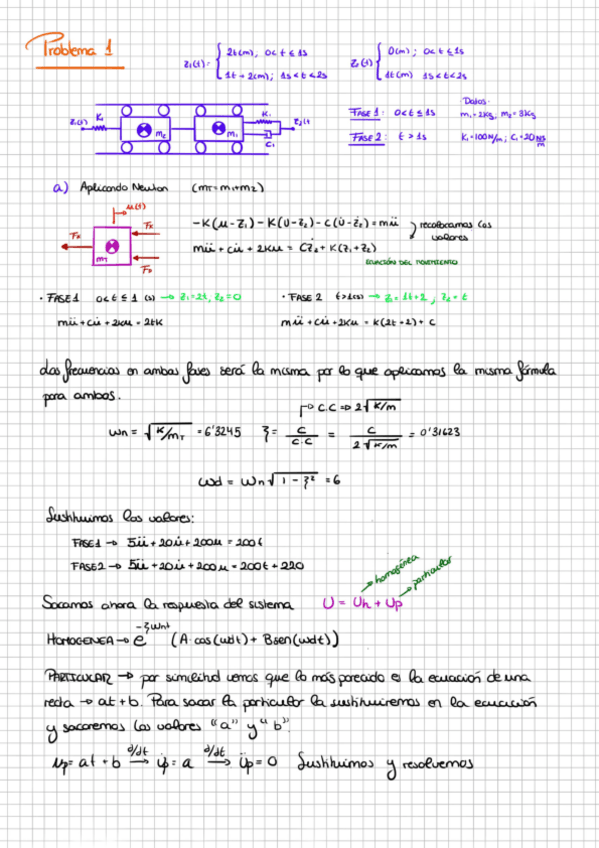 Problema 1
z₁(t): { 2t(m); 0<t≤1s
1t+2(m); 1s<t<2s
z₂(t) { 0(m); 0<t≤1s
1t(m) 1s<t<2s
Datos:
FASE 1: 0<t≤1s m₁=2Kg, m₂=3Kg
FASE 2: t>1s K₁=100N/m; C₁=20 Ns/m
z₁(t) K₁ m₂ m₁ K₁ C₁ z₂(t
a) Aplicando Newton (mT=m₁+m₂)
u(t)
FK FK
mT FD
-K(u-z₁)-K(u-z₂)-c(u̇-ż₂)=mü
recolocamos los valores
mü+cu̇+2Ku = Cż₂+K(z₁+z₂)
ECUACIÓN DEL MOVIMIENTO
· FASE 1 0<t≤1 (s) → z₁=2t, z₂=0
mü+cu̇+2Ku = 2tK
· FASE 2 t>1(s) → z₁=1t+2, z₂=t
mü+cu̇+2Ku = K(2t+2)+C
Las frecuencias en ambas fases será la misma por lo que aplicamos la misma fórmula
para ambas.
C.C ⇒ 2√K/m
ωn = √K/mT = 6'3245 ξ = C/C.C = C/2√K/m = 0'31623
ωd = ωn√1-ξ² = 6
Sustituimos los valores:
FASE 1 → 5ü+20u̇+200u = 200t
FASE 2 → 5ü+20u̇+200u = 200t+220
homogénea
particular
Sacamos ahora la respuesta del sistema U = Uh + Up
HOMOGENEA → e^-ξωnt (A·cos(ωdt)+Bsen(ωdt))
PARTICULAR → por similitud vemos que lo más parecido es la ecuación de una
recta → at+b. Para sacar la particular la sustituiremos en la ecuación
y sacaremos los valores "a" y "b".
up = at+b d/dt→ u̇p = a d/dt→ üp = 0 Sustituimos y resolvemos